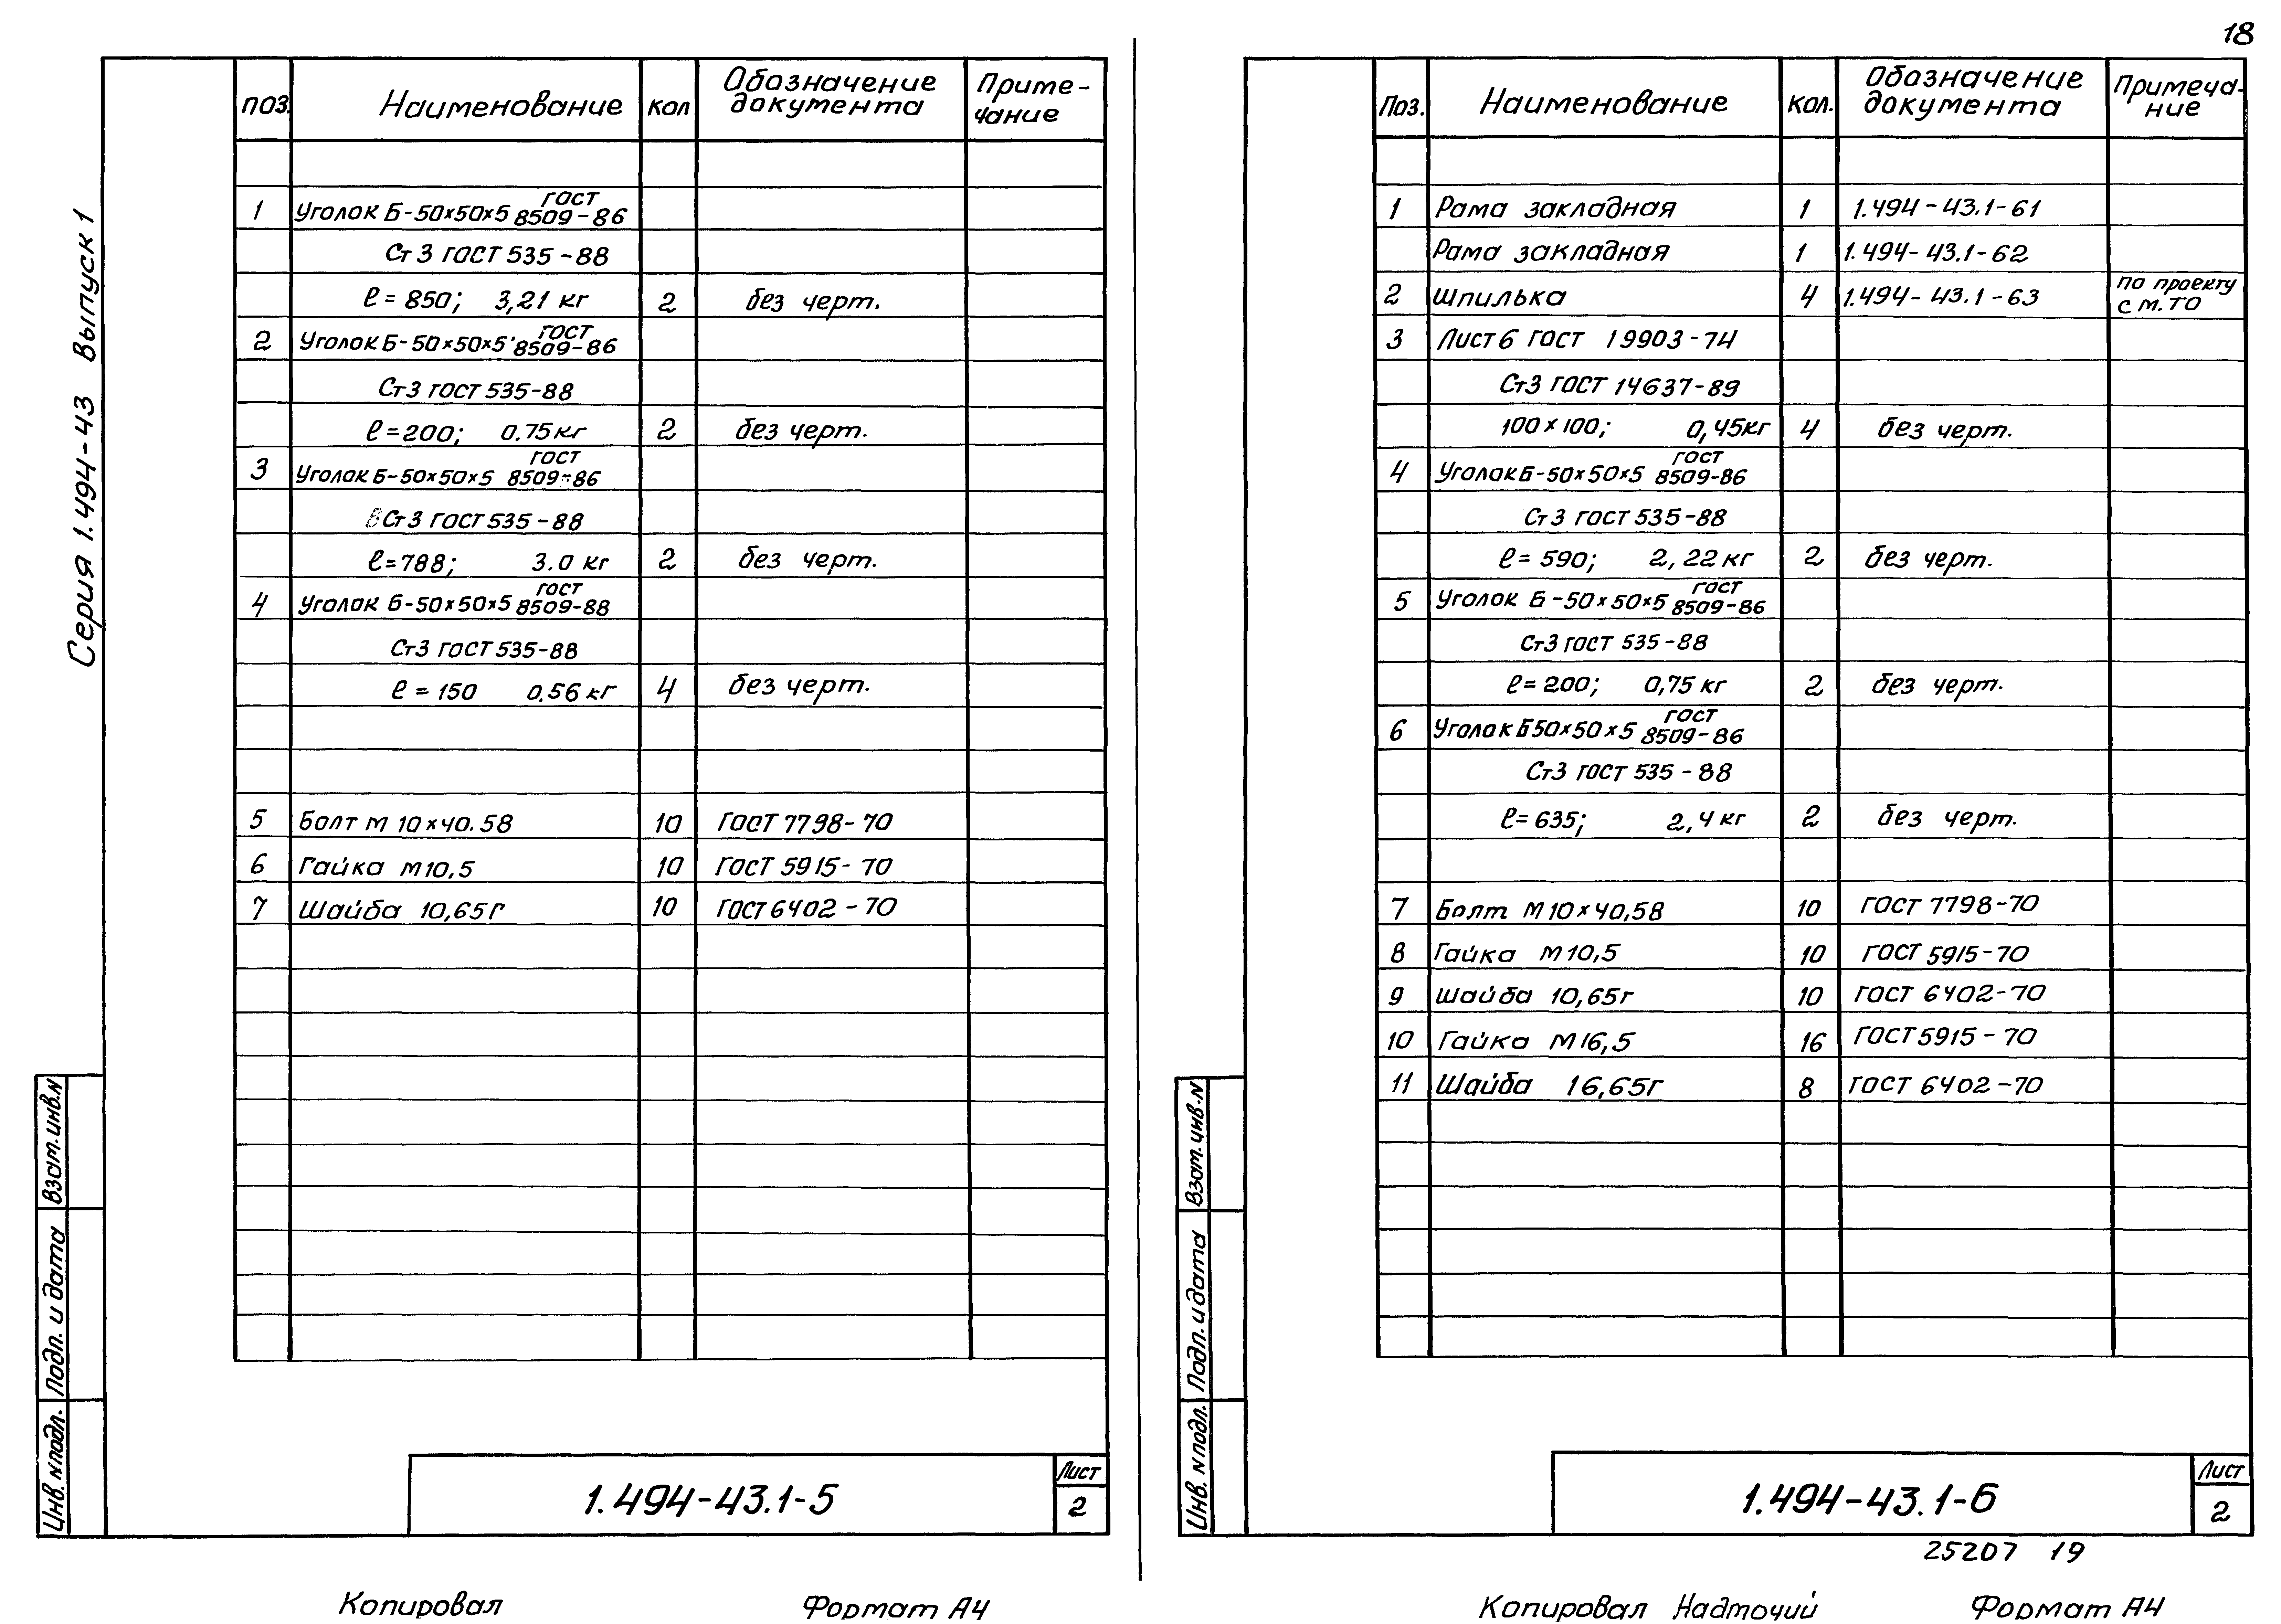 18
Серия 1.494-43 Выпуск 1
поз. Наименование кол Обозначение документа Приме-чание
1 Уголок Б-50×50×5 ГОСТ 8509-86
Ст 3 ГОСТ 535-88
ℓ=850; 3,21 кг 2 без черт.
2 Уголок Б-50×50×5 ГОСТ 8509-86
Ст3 ГОСТ 535-88
ℓ=200; 0.75кг 2 без черт.
3 Уголок Б-50×50×5 ГОСТ 8509-86
Ст3 ГОСТ 535-88
ℓ=788; 3.0 кг 2 без черт.
4 Уголок Б-50×50×5 ГОСТ 8509-88
Ст3 ГОСТ 535-88
ℓ=150 0.56 кг 4 без черт.
5 Болт М 10×40.58 10 ГОСТ 7798-70
6 Гайка М10,5 10 ГОСТ 5915-70
7 Шайба 10,65Г 10 ГОСТ 6402-70
Взам.инв.N
Подп. и дата
Инв. N подл.
1.494-43.1-5
Лист
2
Копировал Формат А4
Поз. Наименование Кол. Обозначение документа Примеча-ние
1 Рама закладная 1 1.494-43.1-61
Рама закладная 1 1.494-43.1-62
2 Шпилька 4 1.494-43.1-63 по проекту с м. ТО
3 Лист 6 ГОСТ 19903-74
Ст3 ГОСТ 14637-89
100×100; 0,45кг 4 без черт.
4 Уголок Б-50×50×5 ГОСТ 8509-86
Ст3 ГОСТ 535-88
ℓ=590; 2,22 кг 2 без черт.
5 Уголок Б-50×50×5 ГОСТ 8509-86
Ст3 ГОСТ 535-88
ℓ=200; 0,75 кг 2 без черт.
6 Уголок Б50×50×5 ГОСТ 8509-86
Ст3 ГОСТ 535-88
ℓ=635; 2,4 кг 2 без черт.
7 Болт М10×40,58 10 ГОСТ 7798-70
8 Гайка М10,5 10 ГОСТ 5915-70
9 Шайба 10,65г 10 ГОСТ 6402-70
10 Гайка М16,5 16 ГОСТ 5915-70
11 Шайба 16,65г 8 ГОСТ 6402-70
Взам.инв.N
Подп. и дата
Инв. N подл.
1.494-43.1-6
Лист
2
25207 19
Копировал Надточий Формат А4